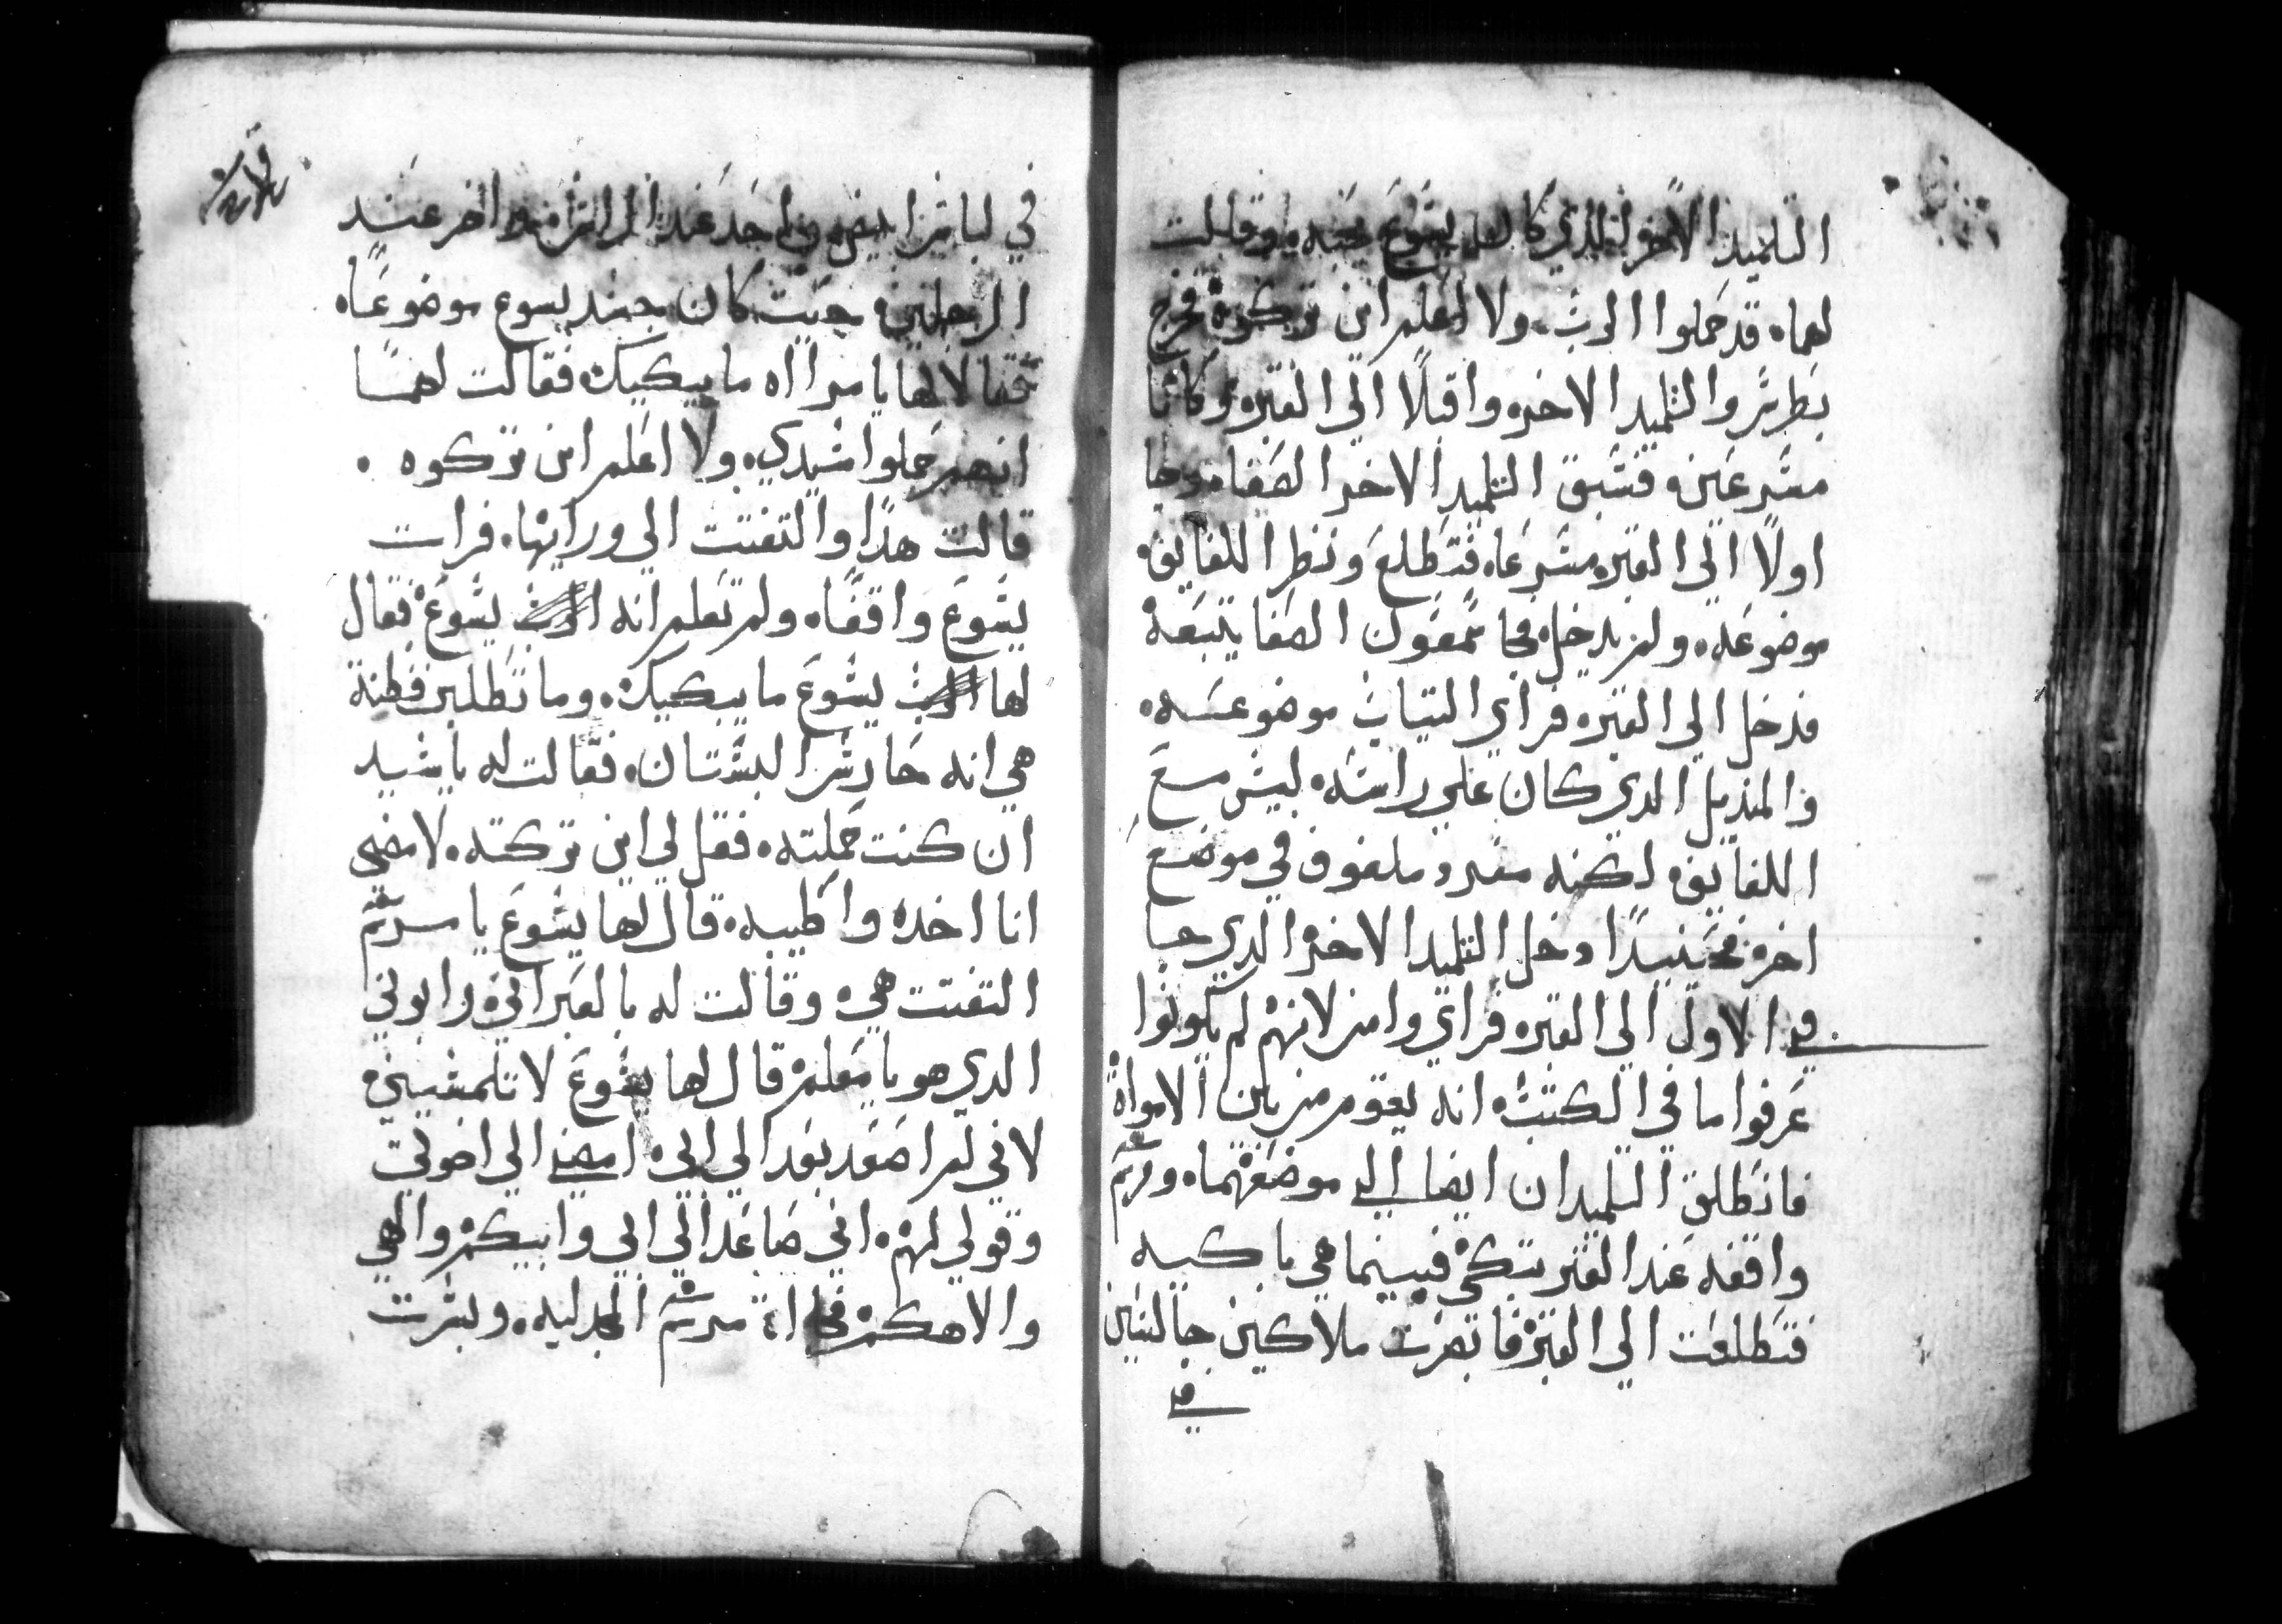 التلميذ الاخر الذي كان يسوع يحبه وقالت
لهما قد حملوا الرب ولا اعلم اين تركوه فخرج
بطرس والتلميد الاخر واقبلا الي القبر وكانا
مسرعين فسبق التلميد الاخر الصفا وجا
اولا الي القبر مسرعا فتطلع ونظر اللفايف
موضوعه ولم يدخل فجا سمعون الصفا يتبعه
فدخل الي القبر فراي التياب موضوعه
والمنديل الدي كان علي راسه ليس مع
اللفايف لكنه مفرد ملفوف في موضع
اخر فحينيدا دخل التلميد الاخر الدي جا
في الاول الي القبر فراي وامن لانهم لم يكونوا
عرفوا ما في الكتب انه يقوم من بين الامواة
فانطلق التلميدان ايضا الي موضعهما ومريم
واقفه عند القبر تبكي فبينما هي باكيه
فتطلعت الي القبر فابصرت ملاكين جالسين
في
في لباس ابيض واحد عند الراس والاخر عند
الرجلين حيت كان جسد يسوع موضوعا
فقالا لها يا مراه ما يبكيك فقالت لهما
انهم حملوا سيدي ولا اعلم اين تركوه
قالت هدا والتفتت الي ورايها فرات
يسوع واقفا ولم تعلم انه الرب يسوع فقال
لها الرب يسوع ما يبكيك وما تطلبين فظنة
هي انه حارس البستان فقالت له يا سيد
ان كنت حملته فقل لي اين تركته لامضي
انا اخده واطيبه قال لها يسوع يا مريم
التفتت هي وقالت له بالعبراني رابوني
الدي هو يا معلم قال لها يسوع لا تلمسيني
لاني لم اصعد بعد الي ابي امضي الي اخوتي
وقولي لهم اني صاعد الي ابي وابيكم والهي
والاهكم فجاات مريم المجدليه وبشرت